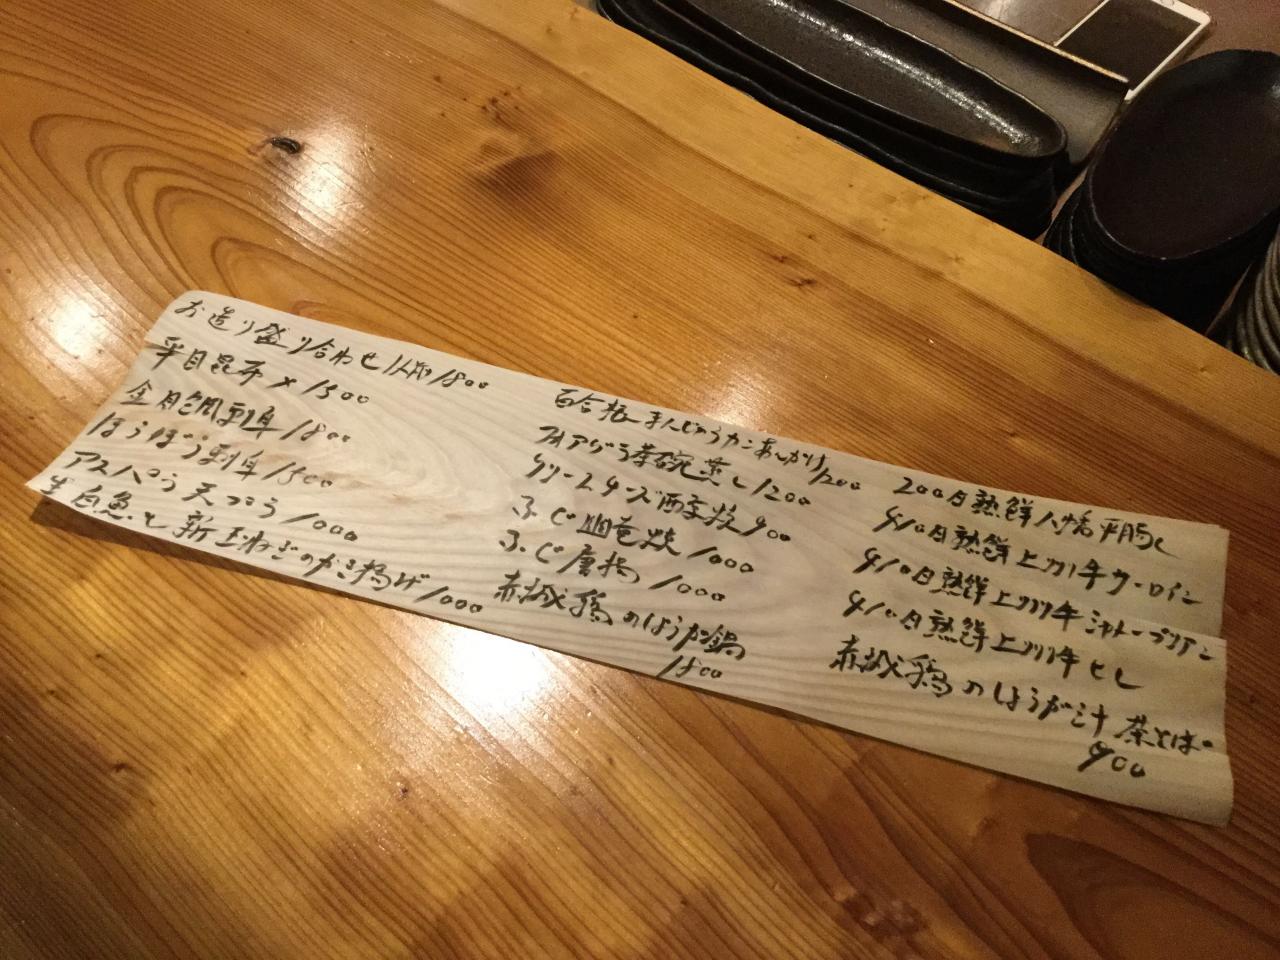 お造り盛り合わせ1人前1800
平目昆布〆1500
金目鯛刺身1800
ほうぼう刺身1500
アスパラ天ぷら1000
生白魚と新玉ねぎのかき揚げ1000
百合根まんじゅうカニあんかけ1200
フォアグラ茶碗蒸し1200
クリームチーズ西京焼900
ふぐ幽竜焼1000
ふぐ唐揚1000
赤城鶏のしょうが鍋
1800
200日熟鮮
410日熟鮮上州牛サーロイン
410日熟鮮上州牛シャトーブリアン
410日熟鮮上州牛ヒレ
赤城鶏のしょうが汁 茶そば
900